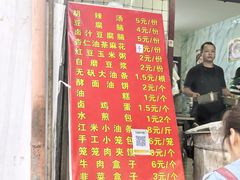 胡辣汤 5元/份
豆腐脑 4元/份
卤汁豆腐脑 5元/份
杏仁油茶麻花 4元/份
红豆玉米粥 2元/份
自磨豆浆 2元/份
无矾大油条 1.5/根
酵面油饼 2元/个
油糕 1元/个
卤鸡蛋 2元/个
水煎包 1元2个
江米小油条 8元/斤
手工小笼包 6元/笼
笼笼肉夹馍 6元/个
牛肉盒子 6元/个
韭菜盒子 3元/个